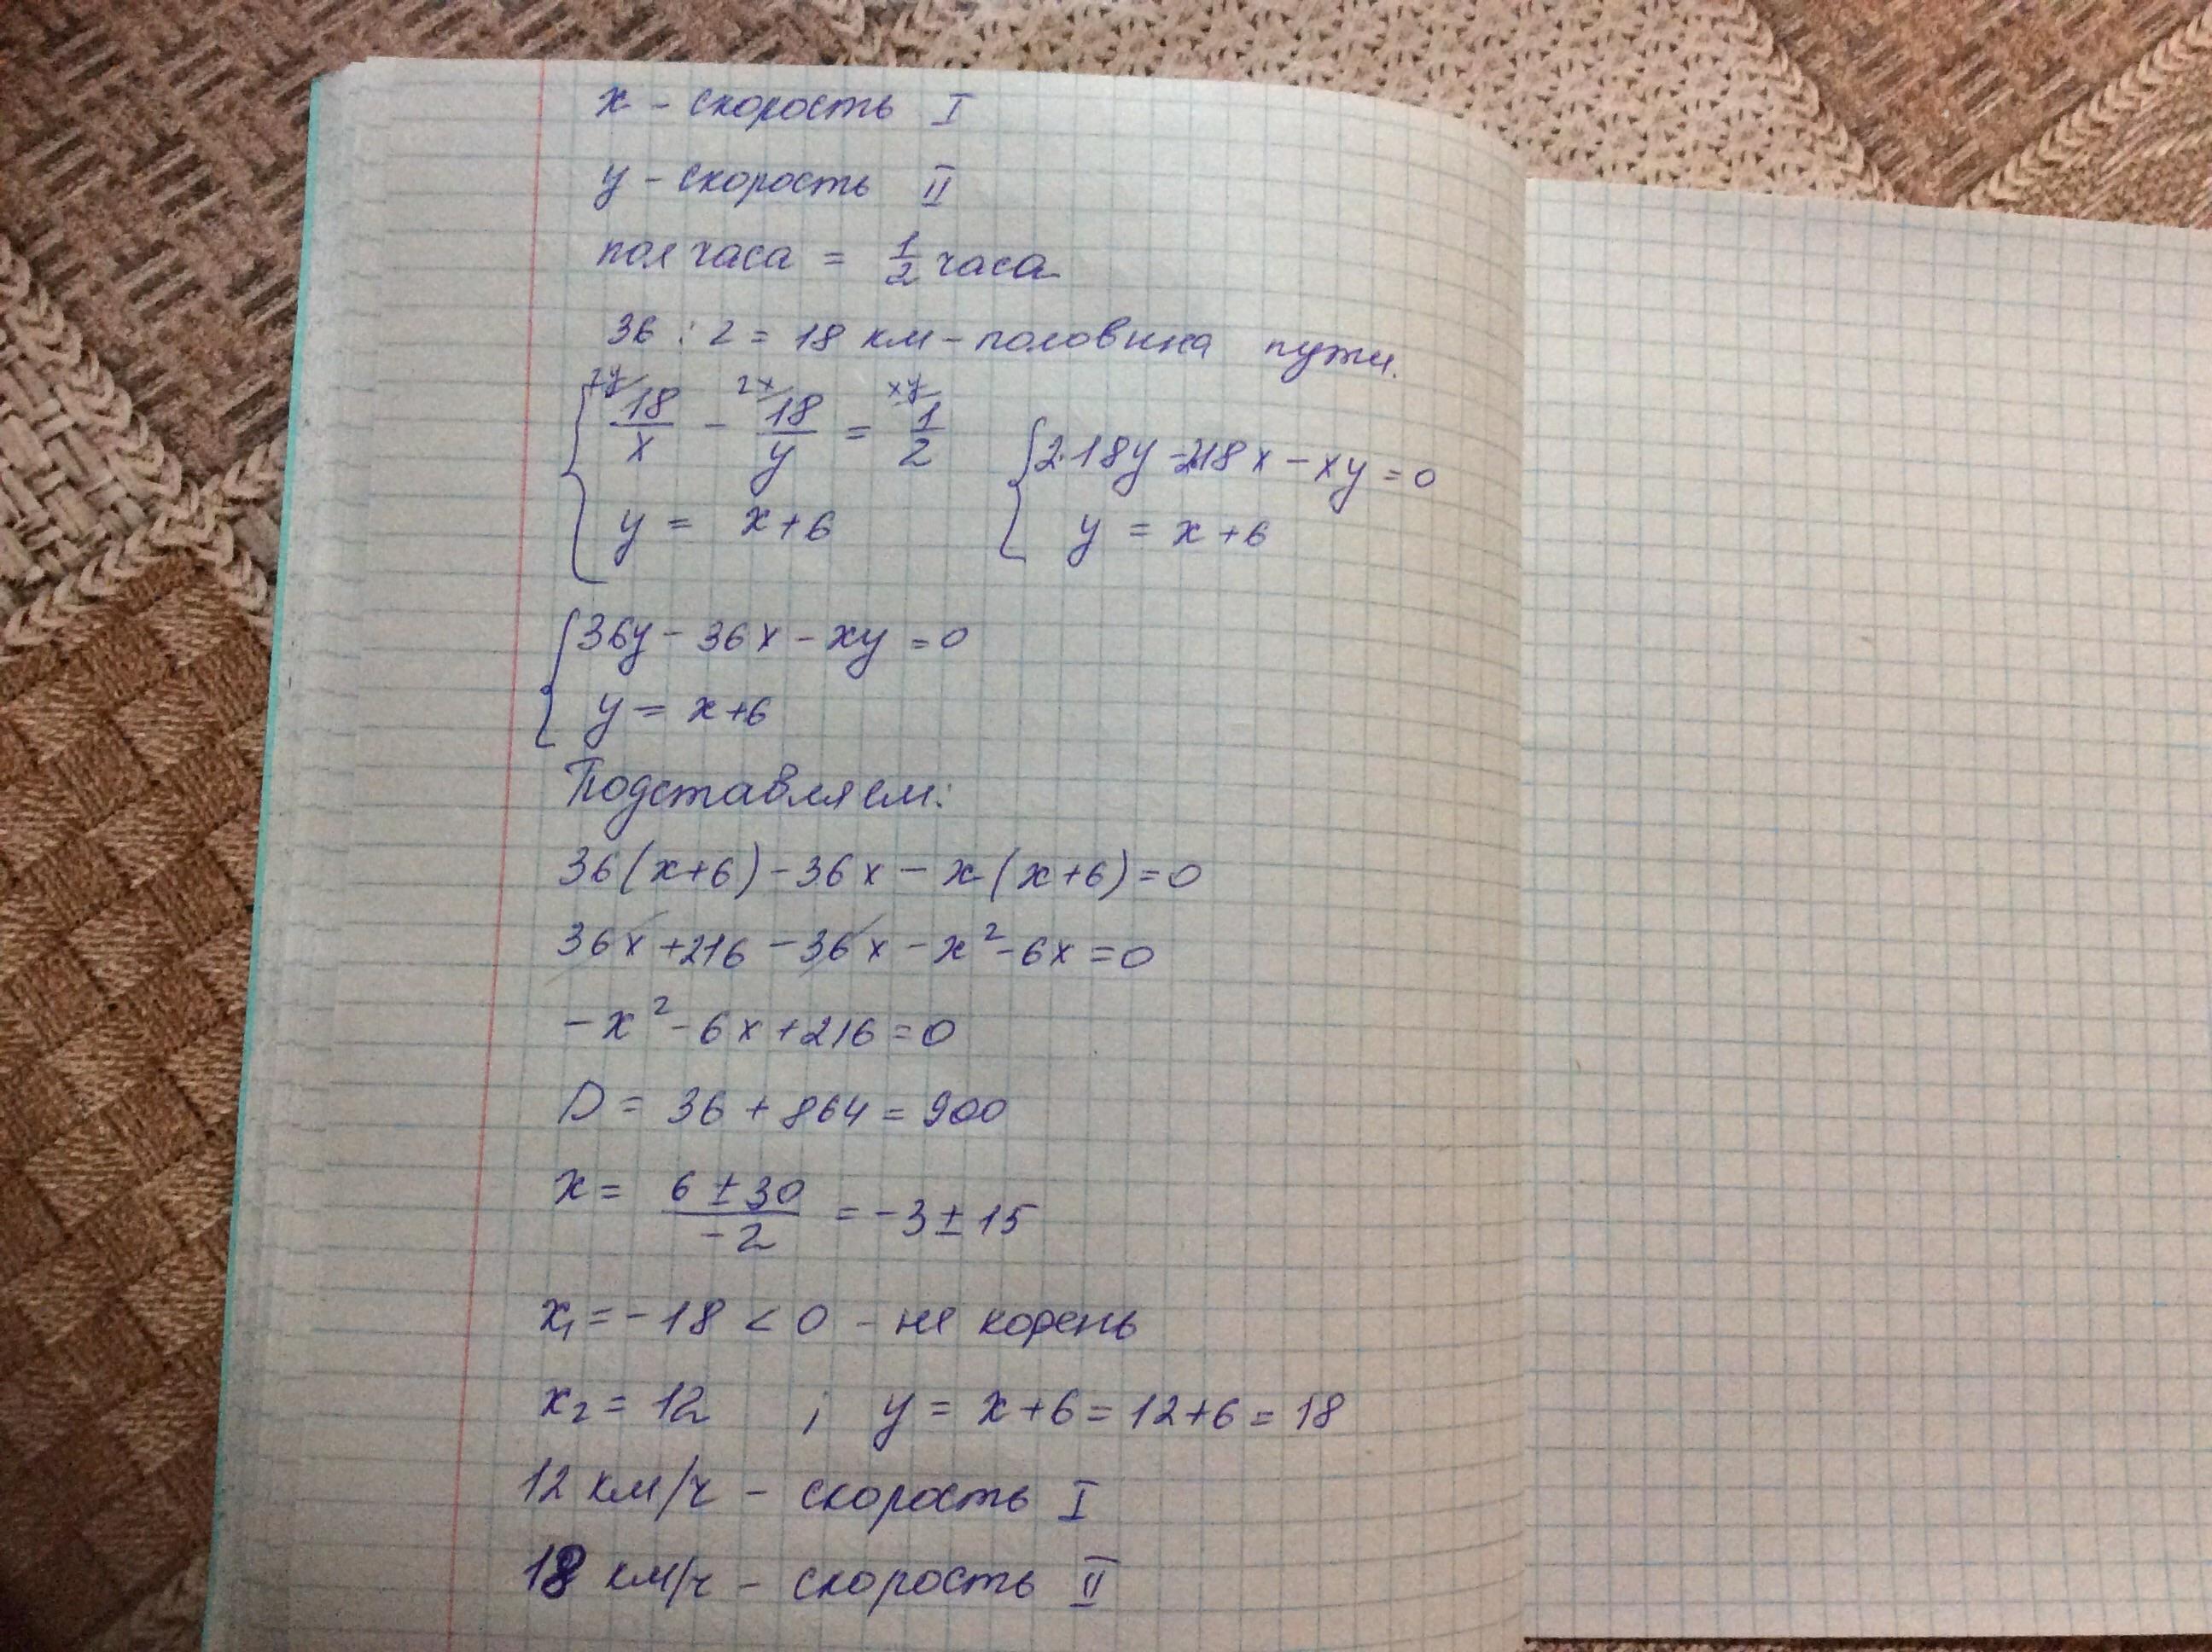 x - скорость I
y - скорость II
пол часа = 1/2 часа
36 : 2 = 18 км - половина пути.
{ 2y/ 18/x - 2x/ 18/y = xy/ 1/2
y = x+6
{ 2·18y - 2·18x - xy = 0
y = x+6
{ 36y - 36x - xy = 0
y = x+6
Подставляем:
36(x+6) - 36x - x(x+6) = 0
36x + 216 - 36x - x² - 6x = 0
- x² - 6x + 216 = 0
D = 36 + 864 = 900
x = (6 ± 30)/-2 = -3 ± 15
x₁ = - 18 < 0 - не корень
x₂ = 12 ; y = x+6 = 12+6 = 18
12 км/ч - скорость I
18 км/ч - скорость II